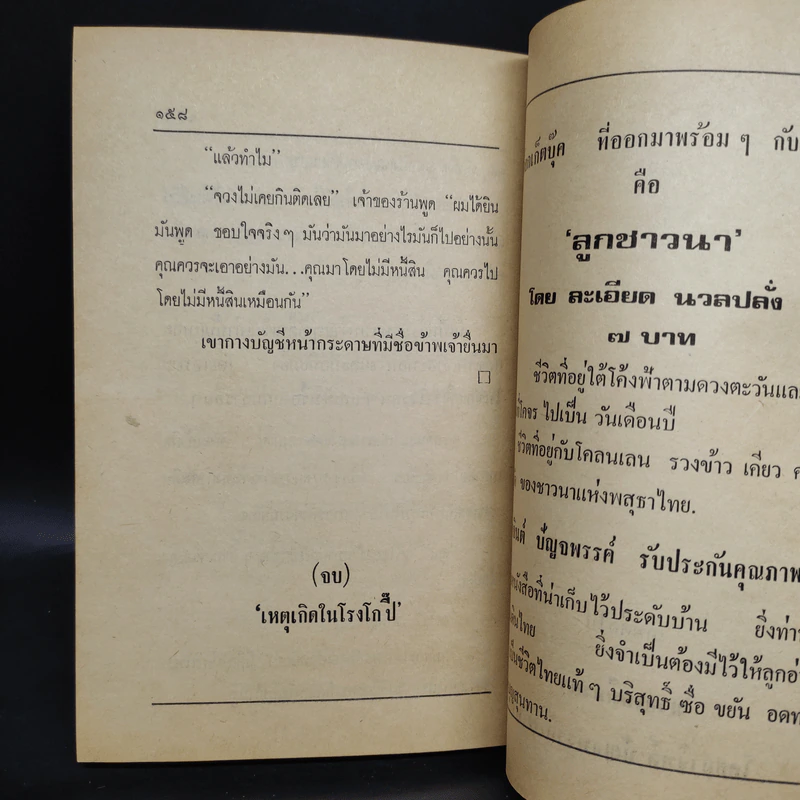 ๑๕๘
“แล้วทำไม”
“จวงไม่เคยกินติดเลย” เจ้าของร้านพูด “ผมได้ยิน
มันพูด ชอบใจจริงๆ มันว่ามันมาอย่างไรมันก็ไปอย่างนั้น
คุณควรจะเอาอย่างมัน...คุณมาโดยไม่มีหนี้สิน คุณควรไป
โดยไม่มีหนี้สินเหมือนกัน”
เขากางบัญชีหน้ากระดาษที่มีชื่อข้าพเจ้ายื่นมา
(จบ)
‘เหตุเกิดในโรงโกปี๊’
ที่ออกมาพร้อม ๆ กับ
คือ
‘ลูกชาวนา’
โดย ละเอียด นวลปลั่ง
๗ บาท
ชีวิตที่อยู่ใต้โค้งฟ้าตามดวงตะวัน
ไปเป็น วันเดือนปี
ชีวิตที่อยู่กับโคลนเลน รวงข้าว เคียว
ของชาวนาแห่งพสุธาไทย.
ปัญจพรรค์ รับประกันคุณภาพ
ที่น่าเก็บไว้ประดับบ้าน ยิ่ง
ไทย ยิ่งจำเป็นต้องมีไว้ให้ลูก
ชีวิตไทยแท้ ๆ บริสุทธิ์ ซื่อ ขยัน
สุนทาน.